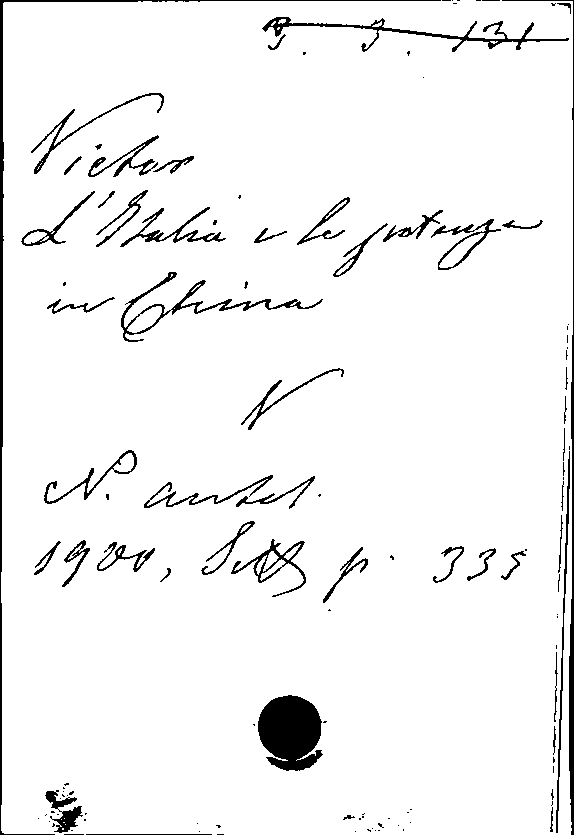 3. 3. 131
Victor
L'Italia e le potenze
in China
V
N. antol.
1900, Sett p. 335